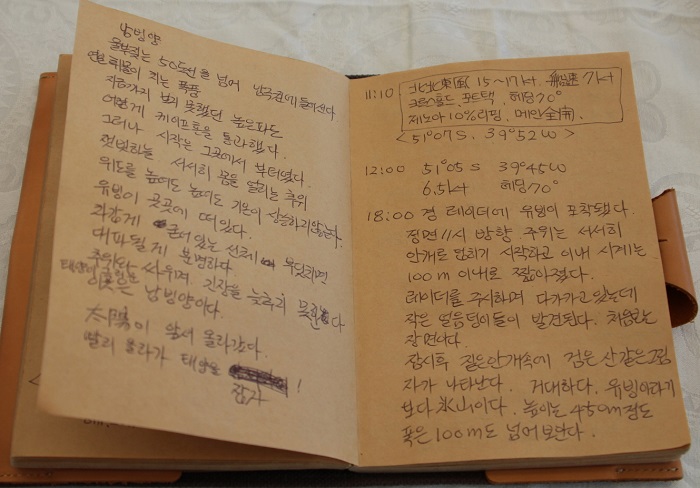 남빙양
울부짖는 50도선을 넘어 남극권에 들어선다
연일 휘몰아 치는 폭풍
지금까지 보지 못했던 높은파도
어렵게 케이프혼을 통과했다.
그러나 시작은 그곳에서 부터였다.
젖빛하늘 서서히 몸을 얼리는 추위
위도를 높여도 높여도 기온이 상승하지않는다.
유빙이 곳곳에 떠있다.
차갑게 굳어있는 선체 부딪히면
대파될게 분명하다
추위와 싸우며, 긴장을 늦추지 못한다
태양이
이곳은 남빙양이다.
太陽이 앞서 올라갔다.
빨리 올라가 태양을 !
잡자
11:10 北北東風 15~17kt. 船速 7kt
크로스홀드. 포트택. 헤딩70°
제노아 10%리핑. 메인全開.
<51°07S. 39°52W>
12:00 51°05S 39°45W
6.5kt 헤딩70°
18:00 경 레이더에 유빙이 포착됐다.
정면 11시 방향 주위는 서서히
안개로 닫히기 시작하고 이내 시계는
100m 이내로 짧아졌다.
레이더를 주시하며 다가가고있는데
작은 얼음덩이들이 발견된다. 처음보는
장면이다.
잠시후 짙은안개속에 검은 산같은그림
자가 나타난다. 거대하다. 유빙이라기
보다 氷山이다. 높이는 450m정도
폭은 100m도 넘어보인다.